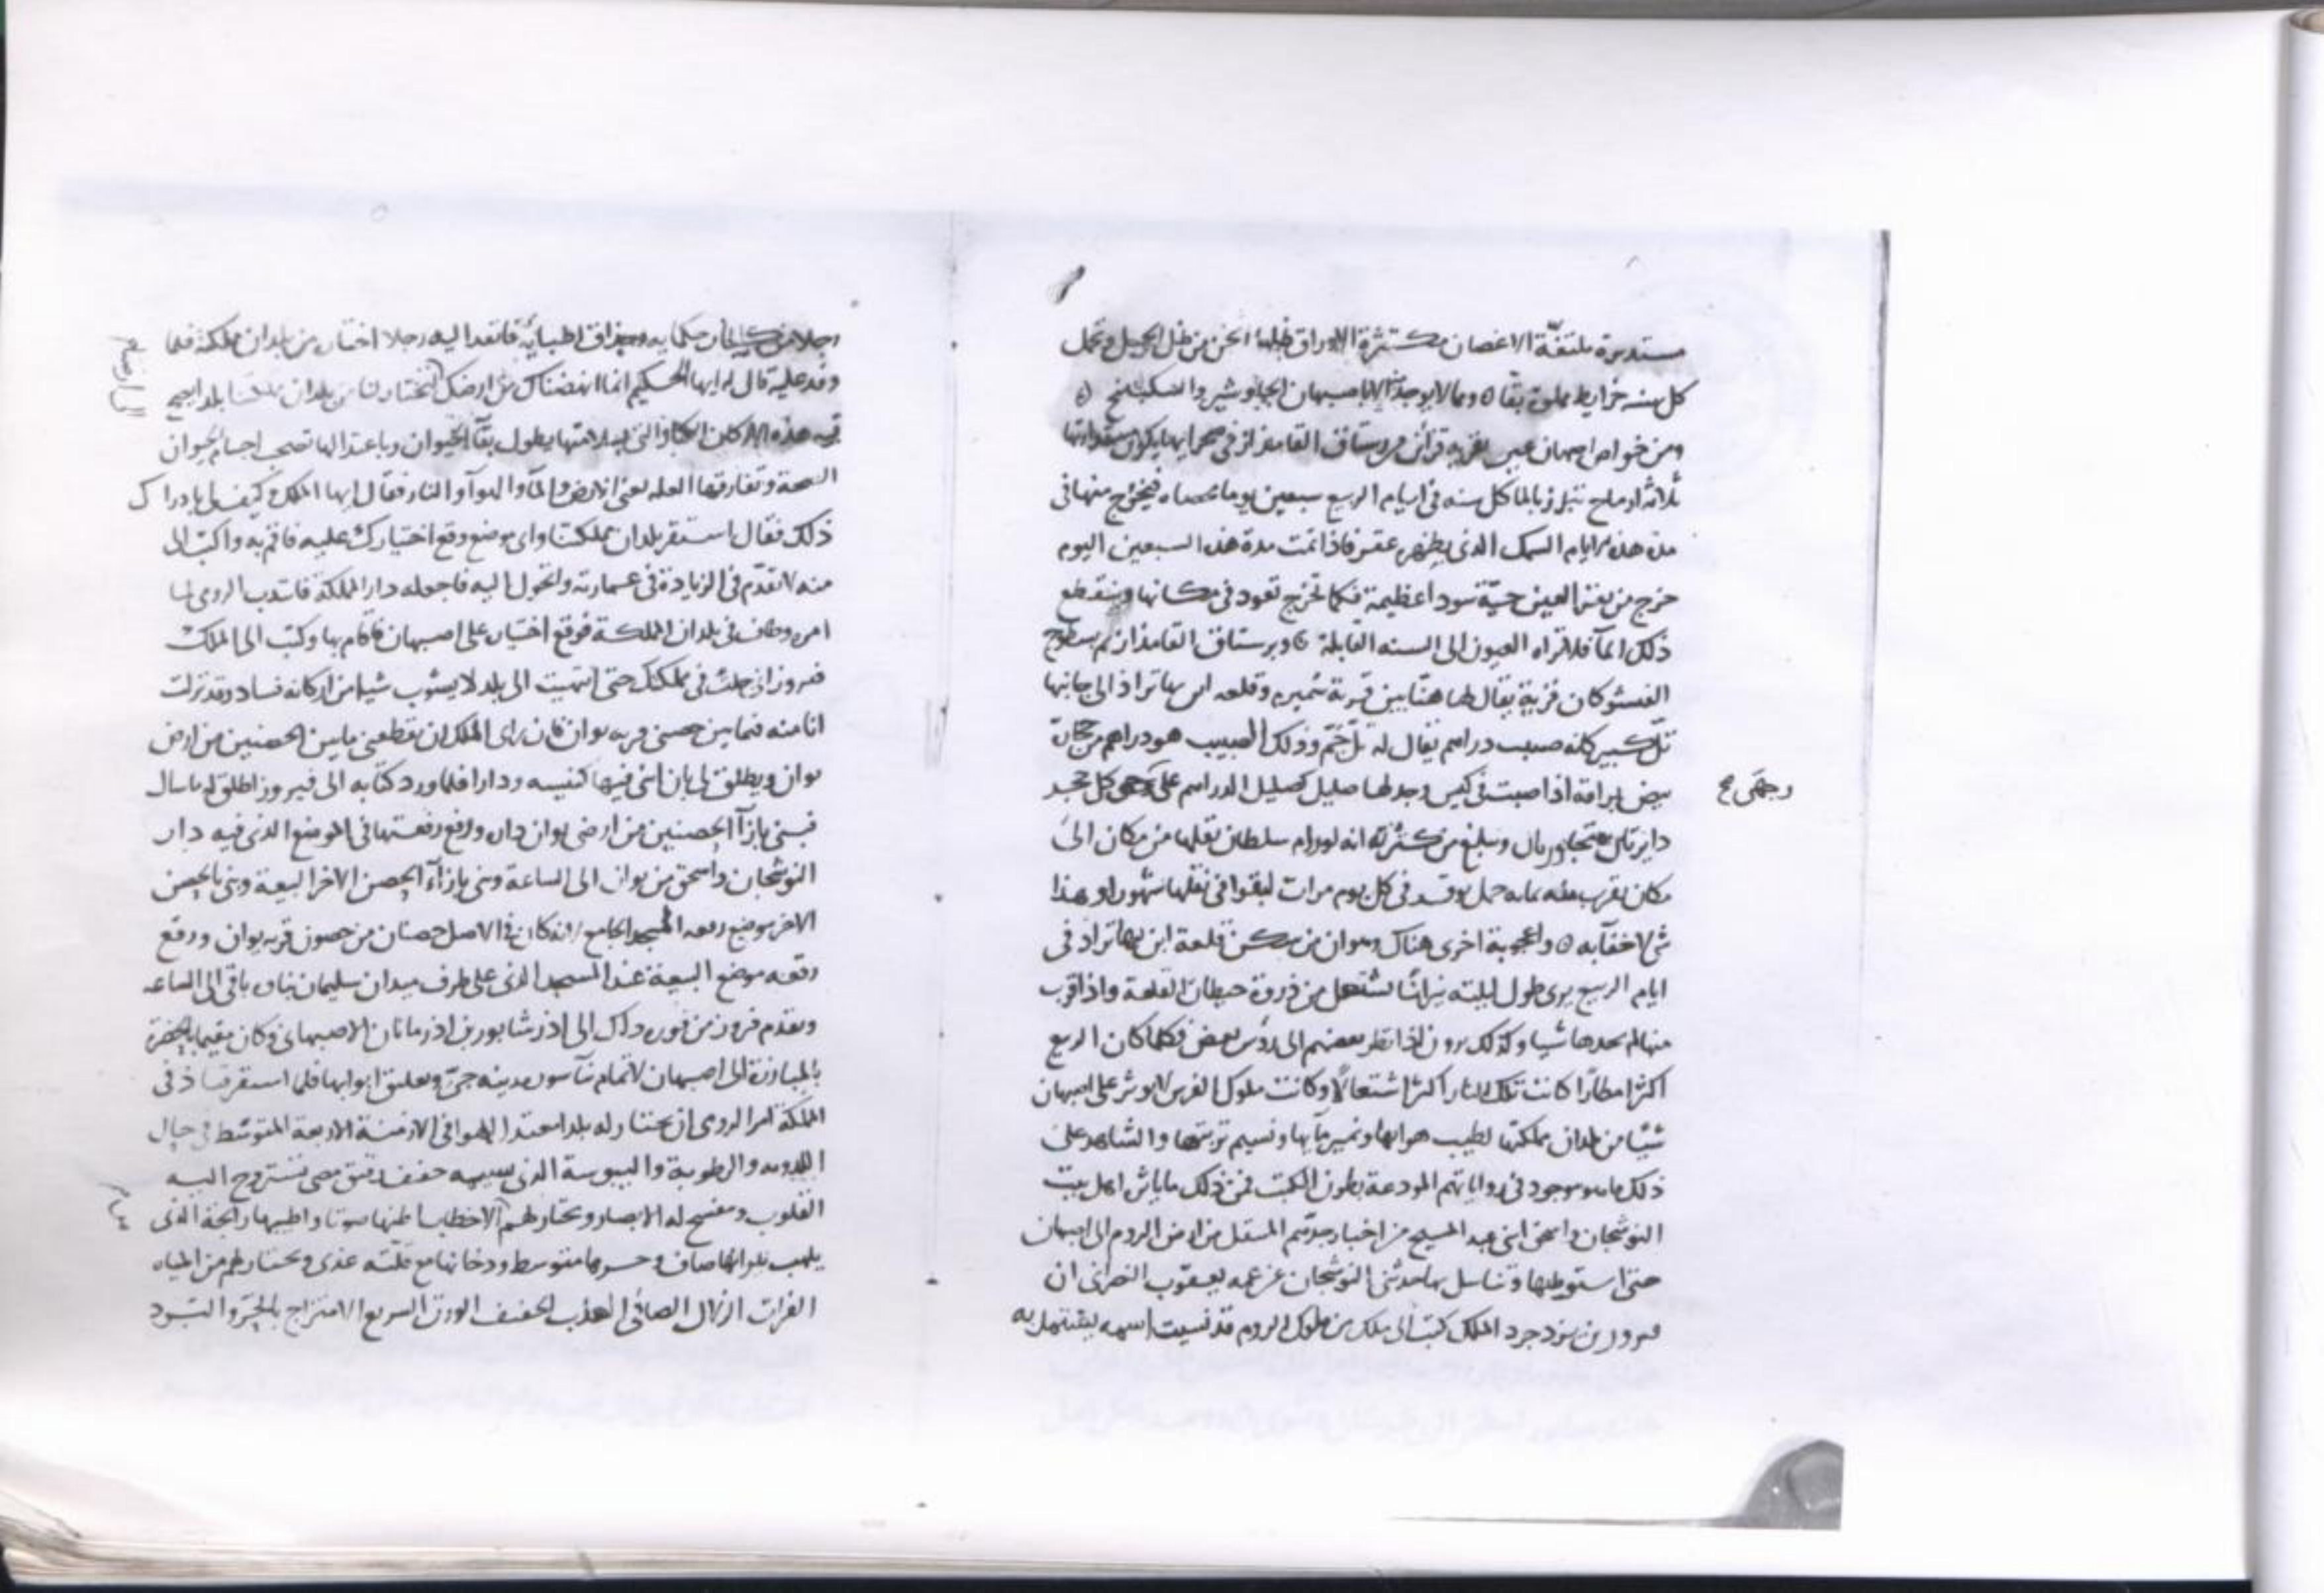 مستديرة ملتفّة الاغصان مستكثرة الاوراق ظلها اثخن من ظل الجبل وتحمل
كل سنه خرايط مملوة بقا ٥ ومما لا يوجد الا باصبهان الجاوشير والسكبينج ٥
ومن خواص اصبهان عين بقرية قرائن من رستاق القامذار في صحرايها يكون مقدارها
ثلاثة ارماح تنبز بالما كل سنه في ايام الربيع سبعين يوما فيخرج منها في
مدة هذه الايام السمك الذي بظهره عقر فاذا تمت مدة هذه السبعين اليوم
خرج من نفس العين حيّة سودا عظيمة فكما تخرج تعود في مكانها وينقطع
ذلك المآ فلا تراه العيون الى السنه القابلة ٥ وبرستاق القامذار ثم بسطوح
قرية يقال لها هنّا بين قرية شميره وقلعه ابن بهاتراذ الى جانبها
تلّ كبير كانه صبيب دراهم يقال له تلّ ختم وذلك الصبيب هو دراهم حجارة
بيض براقة اذا صبت في كيس وجد لها صليل كصليل الدراهم على وجهي كل حجر
دايرتان وسلغ من كثرته انه لو رام سلطان نقلها من مكان الى
مكان يقرب منه بمايه حمل يوقر في كل يوم مرات لبقوا في نقلها شهورا وهذا
شي لا خفآ به ٥ واعجوبة اخرى هناك وهو ان من سكن قلعة ابن بهاتراذ في
ايام الربيع يرى طول ليلته نيرانًا تشتعل من ذروة حيطان القلعة واذا قرب
منها لم يجدها شيا وكذلك يرون اذا نظر بعضهم الى رؤس بعض فكلما كان الربيع
اكثر امطارًا كانت تلك النار اكثر اشتعالًا وكانت ملوك الفرس لا يوثر على اصبهان
شيًا من بلدان مملكتها لطيب هوايها ونمير مآيها ونسيم تربتها والشاهد على
ذلك ما هو موجود في رواياتهم المودعة بطون الكتب فمن ذلك ما ياثر اهل بيت
النوشجان واسحق ابني عبد المسيح من اخبار جدّهم المنتقل من ارض الروم الى اصبهان
حتى استوطنها وتناسل بها حدثني النوشجان عن عمه يعقوب النصراني ان
فيروز بن يزدجرد الملك كتب الى ملك من ملوك الروم قد نسيت اسمه
وجهَي ح
رجلا من حكمايه وحذاق اطبايه فانفذ اليه رجلا اختاره من بلدان مملكته فلما
وفد عليه قال له ايها الحكيم انما انهضناك من ارضك لتختار لنا من بلدان مملكتنا بلدا يصح
فيه هذه الاركان الكبار التي بسلامتها يطول بقآ الحيوان وباعتدالها تصحب اجسام الحيوان
الصحة وتفارقها العله يعني الارض والمآ والهوآ والنار فقال ايها الملك وكيف لي بادراك
ذلك فقال استقر بلدان مملكتنا واي موضع وقع اختيارك عليه فاقم به واكتب الى
منه لاتقدّم في الزيادة في عمارته واتحول اليه فاجعله دار المملكة فانتدب الرومي لما
امره وطاف في بلدان المملكة فوقع اختياره على اصبهان فاقام بها وكتب الى الملك
فيروز اني جلت في مملكتك حتى انتهيت الى بلد لا يشوب شيا من اركانه فساد وقد نزلت
انا منه فيما بين حصني قريه يوان فان راى الملك ان يقطعني ما بين الحصنين من ارض
يوان ويطلق لي بان ابني فيها كنيسه ودارا فلما ورد كتابه الى فيروز اطلق له ما سال
فبنى بازآ الحصنين من ارض يوان داره ووقع رقعتها في الموضع الذي فيه دار
النوشجان واسحق من يوان الى الساعة وبنى بازآء الحصن الاخر البيعة وبنى بالحصن
الاخر موضع رقعه المسجد الجامع كان في الاصل حصنان من حصون قريه يوان ووقع
رقعه موضع البيعة عند المسجد الذي على طرف ميدان سليمان بناه باقي الى الساعه
وتقدم فيروز من فوره ذلك الى اذرشابور بن اذرمانان الاصبهاني وكان مقيما بالحضرة
بالمبادرة الى اصبهان لاتمام بنآ سور مدينه جيّ وتعليق ابوابها فلما استقر قباذ في
المملكة امر الرومي ان يختار له بلدا معتدل الهوا في الازمنة الاربعة المتوسط في حال
البرودة والرطوبة واليبوسة الذي نسيمه خفيف رقيق مضي تستروح اليه
القلوب وتنفسح له الابصار ويختار لهم الاحطاب واطيبها رايحة الذي
يلهب نيرانها صاف وحرها متوسط ودخانها مع قلته عذي ويختار لهم من المياه
الفرات الزلال الصافي العذب الخفيف الوزن السريع الامتزاج بالحرّ والبرد